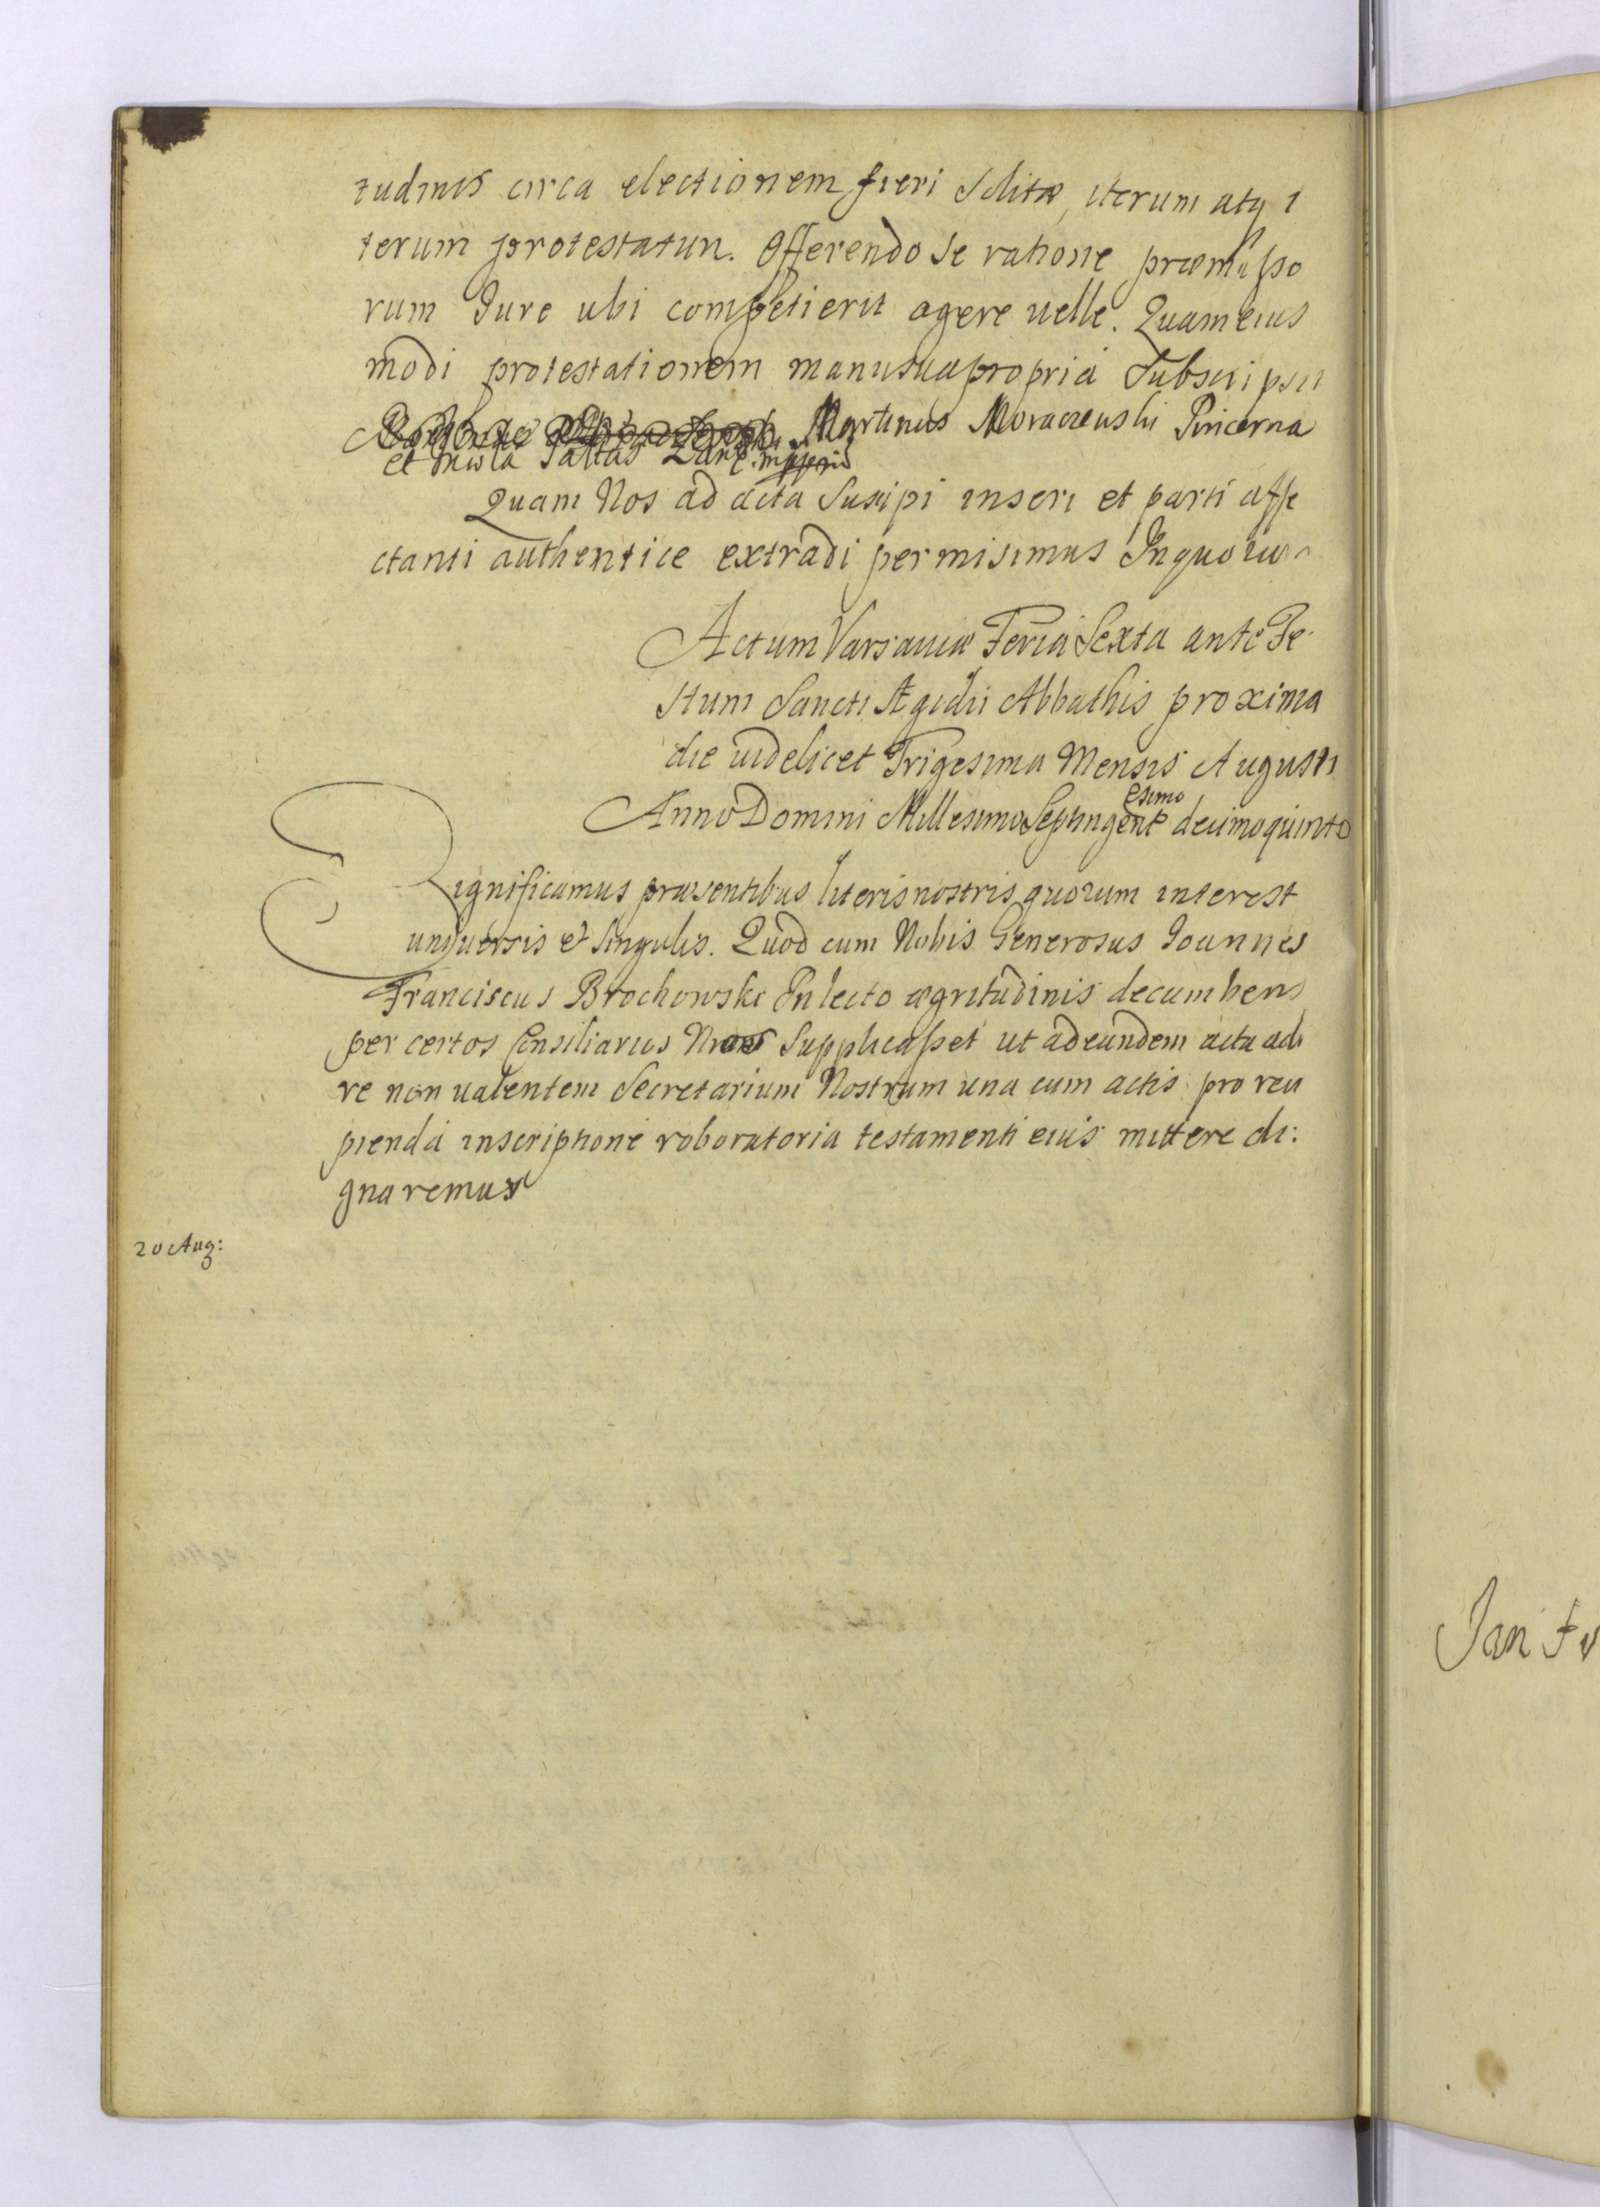 tudinis circa electionem fieri Solitæ, iterum atq i
terum protestatur. Offerendo se ratione præmisso
rum Jure ubi competierit agere uelle. Quam eius
modi protestationem manu sua propria Subscripsit
Martinus Moraczeuski Pincerna
et
Quam Nos ad acta Suscipi inseri et parti affe
ctanti authentice extradi permisimus In quorum
Actum Varsauiæ Feria Sexta ante Fe-
stum Sancti Ægidii Abbathis proxima
die uidelicet Trigesima Mensis Augusti
Anno Domini Millesimo Septingentesimo decimoquinto
Significamus præsentibus literis nostris quorum interest
uniuersis et Singulis. Quod cum Nobis Generosus Joannes
Franciscus Brochowski In lecto ægritudinis decumbens
per certos Consiliarios Nros Supplicasset ut ad eundem acta adi
re non ualentem Secretarium Nostrum una cum actis pro reci
pienda inscriptione roboratoria testamenti eius mittere di:
gnaremur
20 Aug:
Jan